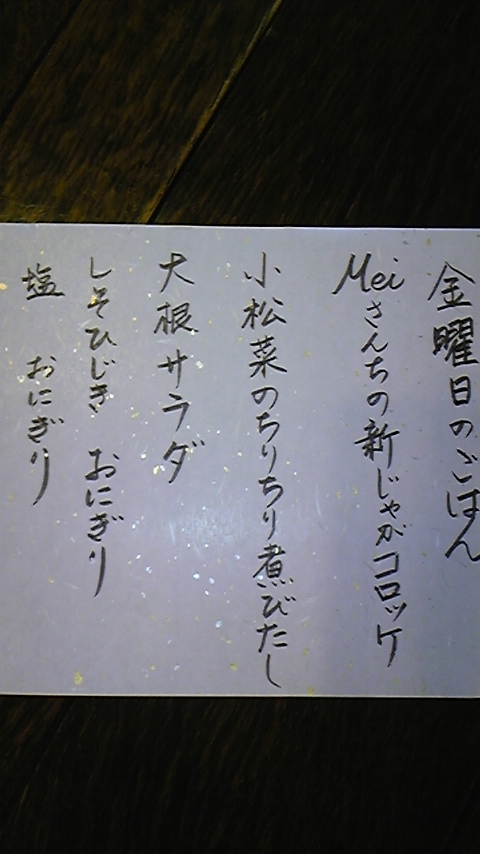 金曜日のごはん
Meiさんちの新じゃがコロッケ
小松菜のちりちり煮びたし
大根サラダ
しそひじき おにぎり
塩 おにぎり